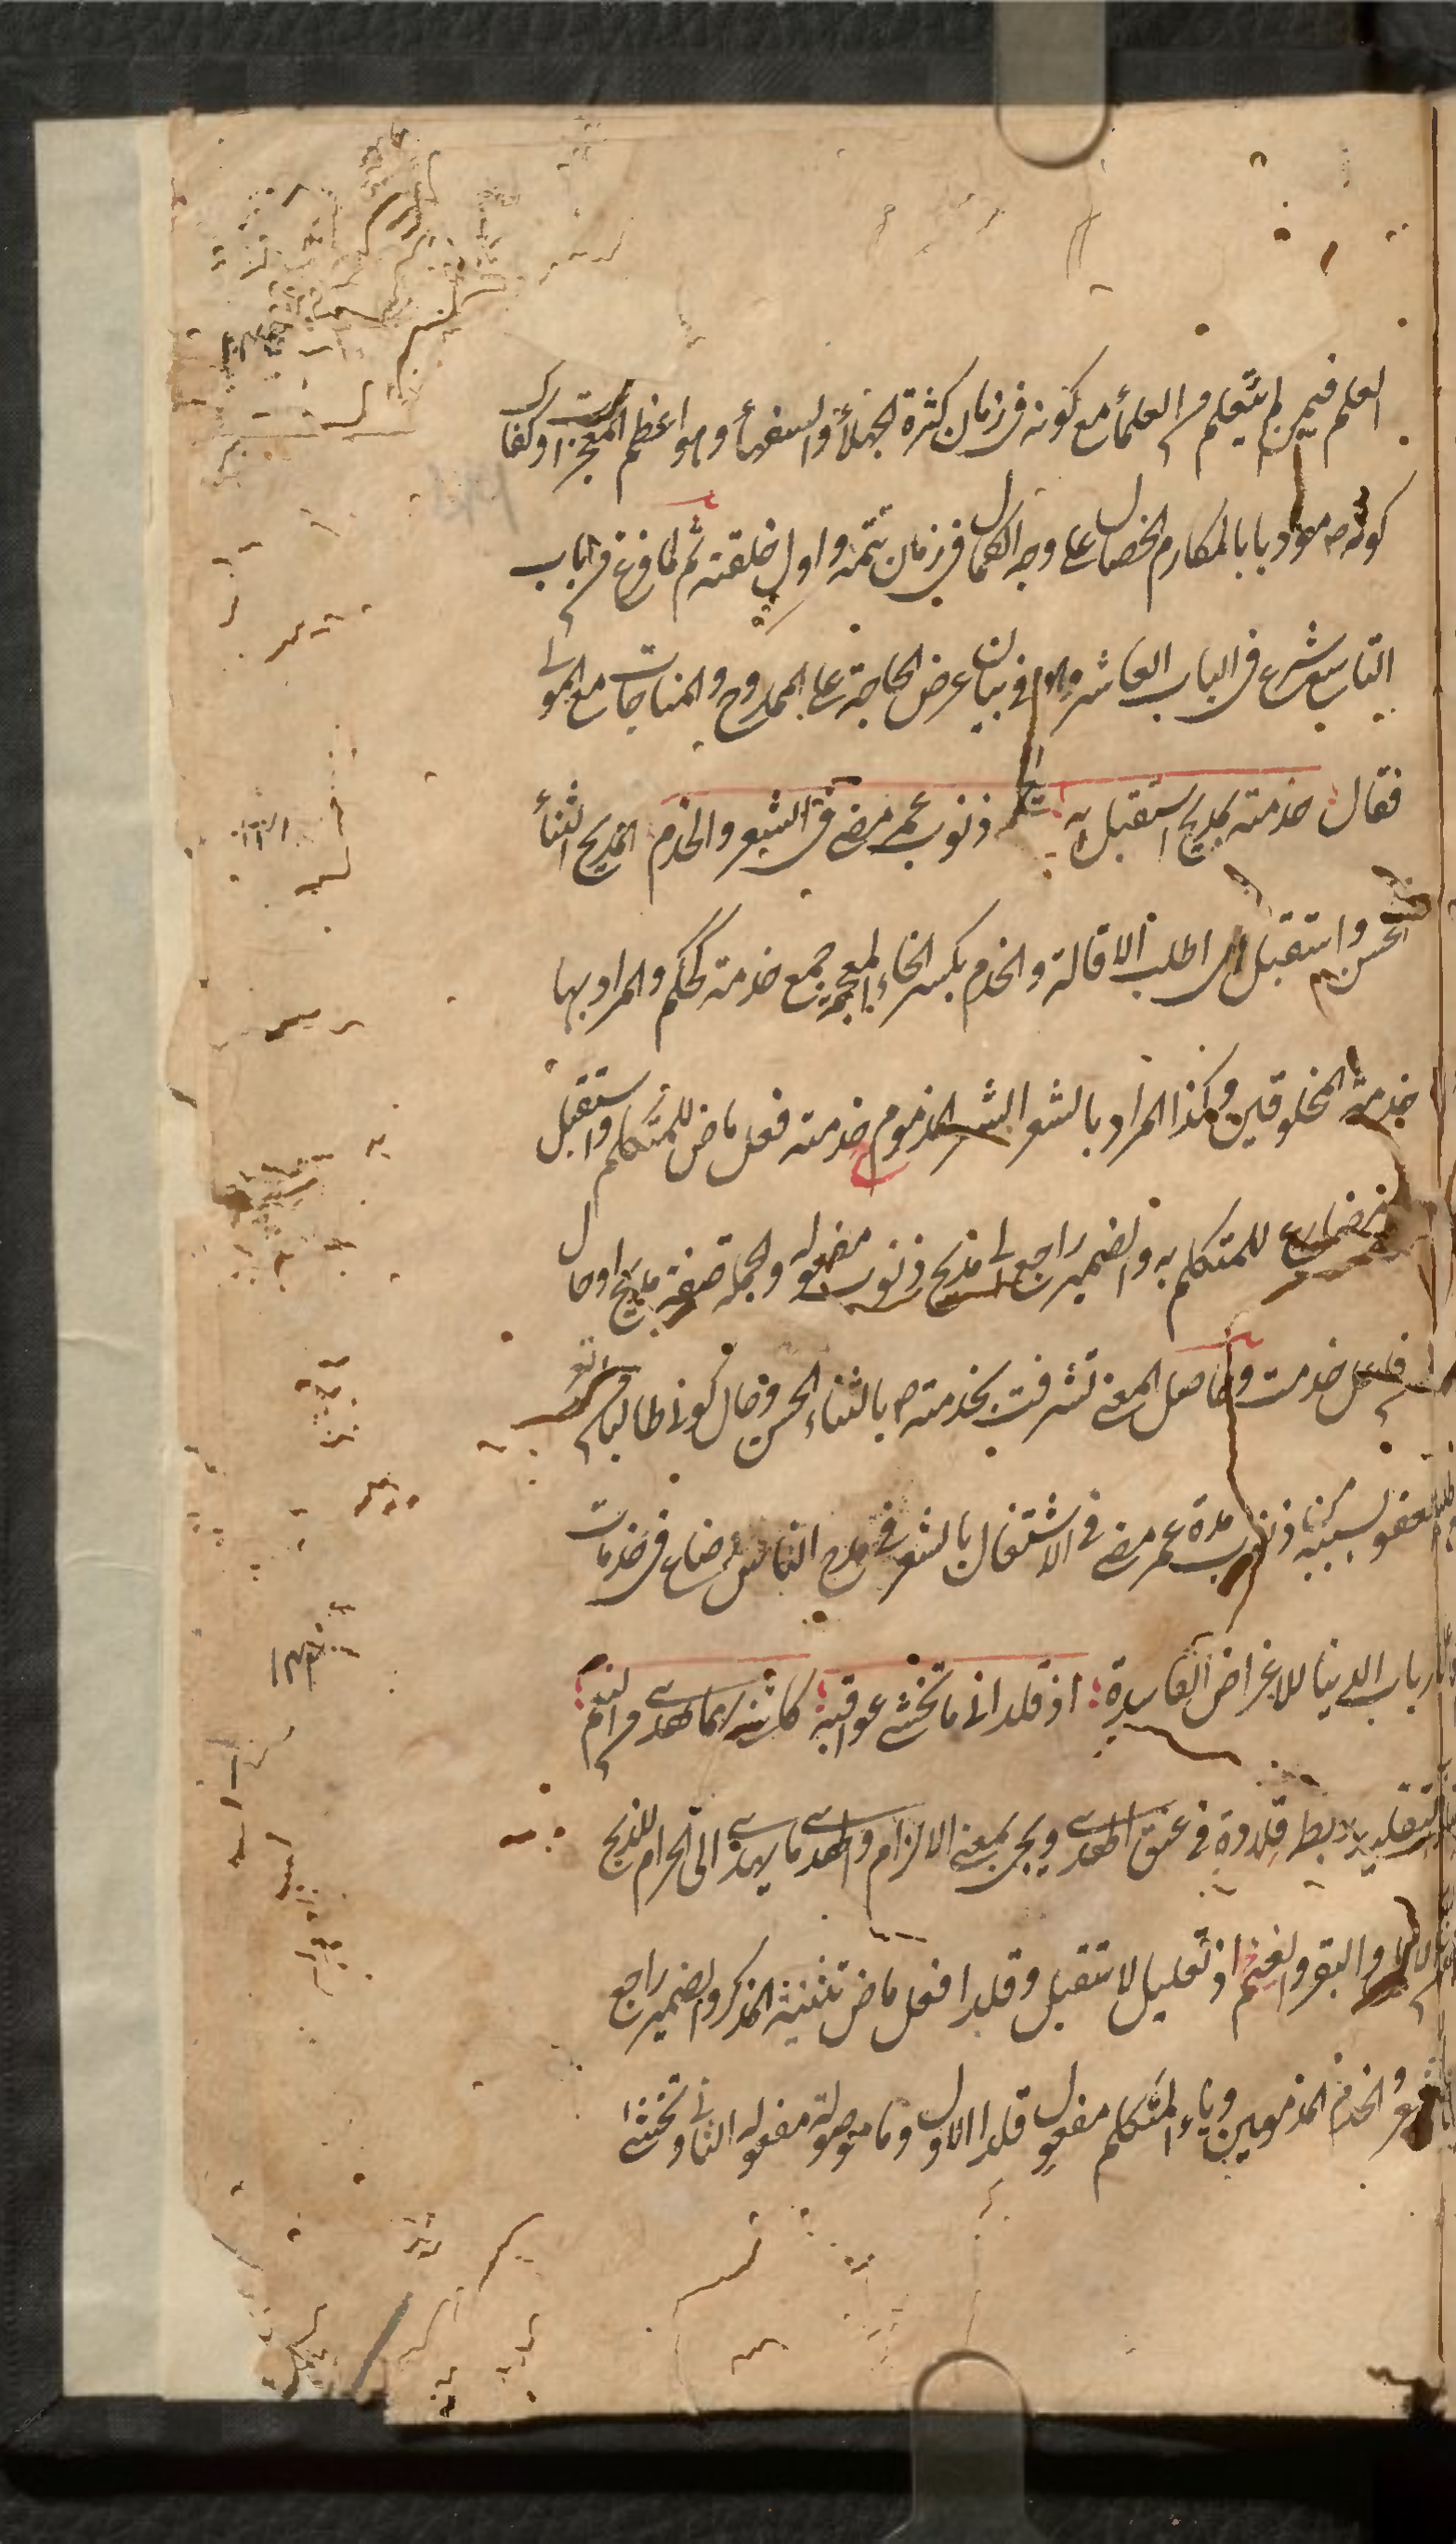 العلم فيمن لم يتعلم من العلمأ مع كونه فى زمان كثرة الجهلأ والسفهأ وهو اعظم المعجزات وكذا
كونه ص مؤدبا بالمكارم الخصال على وجه الكمال فى زمان يتمه واول خلقته ثم لما فرغ من الباب
التاسع شرع فى الباب العاشر فى بيان عرض الحاجة على الممدوح والمناجات مع المولى
فقال خدمته بمديح استقيل به ذنوب عمر مضى فى الشعر والخدم المديح الثنأ
الحسن واستقيل اى اطلب الاقالة والخدم بكسر الخاء المعجمة جمع خدمة كحكم والمراد بها
خدمة المخلوقين وكذا المراد بالشعر الشعر المذموم خدمته فعل ماض للمتكلم واستقيل
مضارع للمتكلم به والضمير راجع الى مديح ذنوب مفعوله والجملة صفة مديح او حال
من فاعل خدمت وحاصل المعنى تشرفت بخدمته ص بالثناء الحسن وحال كونى طالبا من الله تع
العفو بسببه من ذنوب مدة عمر مضى فى الاشتغال بالشعر فى مدح الناس وضاع فى خدمات
ارباب الدنيا للاغراض الفاسدة اذ قلدانى ما تخشى عواقبه كاننى بهما هدى من النعم
التقليد ربط قلادة فى عنق الهدى ويجئ بمعنى الالزام والهدى ما يهدى الى الحرام للذبح
من الابل والبقر والغنم اذ تعليل لاستقيل وقلدا فعل ماض تثنية المذكر والضمير راجع
الشعر والخدم المذمومين وياء المتكلم مفعول قلدا الاول وما موصولة مفعوله الثانى وتخشى